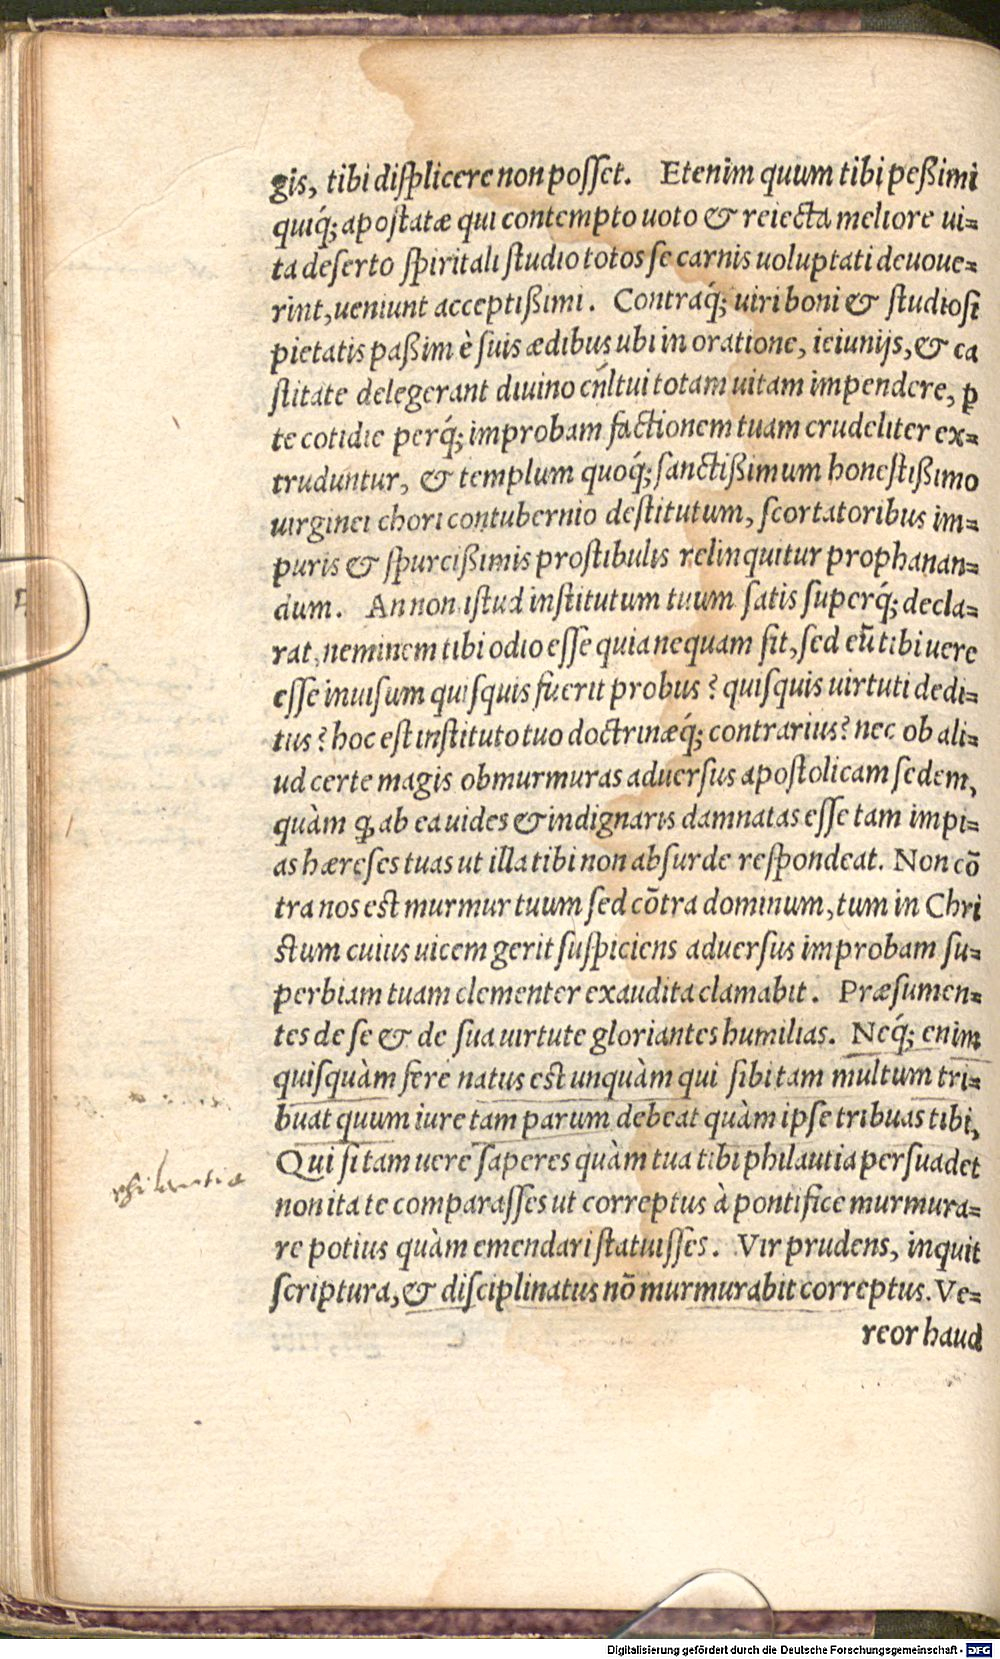 gis, tibi diſplicere non poſſet. Etenim quum tibi peßimi
quiq́; apostatæ qui contempto uoto & reiecta meliore ui=
ta deserto ſpiritali ſtudio totos ſe carnis uoluptati deuoue=
rint, ueniunt acceptißimi. Contraq́; uiri boni & ſtudioſi
pietatis paßim è ſuis ædibus ubi in oratione, ieiunijs, & ca
ſtitate delegerant diuino cultui totam uitam impendere, ꝑ
te cotidie perq́; improbam factionem tuam crudeliter ex=
truduntur, & templum quoq́; ſanctißimum honeſtißimo
uirginei chori contubernio deſtitutum, ſcortatoribus im=
puris & ſpurcißimis proſtibulis relinquitur prophanan=
dum. An non iſtud inſtitutum tuum ſatis ſuperq́; decla=
rat, neminem tibi odio eſſe quia nequam ſit, ſed eũ tibi uere
eſſe inuiſum quiſquis fuerit probus? quiſquis uirtuti dedi=
tus? hoc eſt inſtituto tuo doctrinæq́; contrarius? nec ob ali=
ud certe magis obmurmuras aduerſus apoſtolicam ſedem,
quàm ꝙ ab ea uides & indignaris damnatas eſſe tam impi=
as hæreſes tuas ut illa tibi non abſurde reſpondeat. Non cõ
tra nos eſt murmur tuum ſed cõtra dominum, tum in Chri
ſtum cuius uicem gerit ſuſpiciens aduerſus improbam ſu=
perbiam tuam clementer exaudita clamabit. Præſumen=
tes de ſe & de ſua uirtute gloriantes humilias. Neq́; enim
quiſquàm fere natus eſt unquàm qui ſibi tam multum tri=
buat quum iure tam parum debeat quàm ipſe tribuas tibi,
Qui ſi tam uere ſaperes quàm tua tibi philautia perſuadet
philautia
non ita te comparaſſes ut correptus à pontifice murmura=
re potius quàm emendari ſtatuiſſes. Vir prudens, inquit
ſcriptura, & diſciplinatus nõ murmurabit correptus. Ve=
reor haud
Digitalisierung gefördert durch die Deutsche Forschungsgemeinschaft - DFG